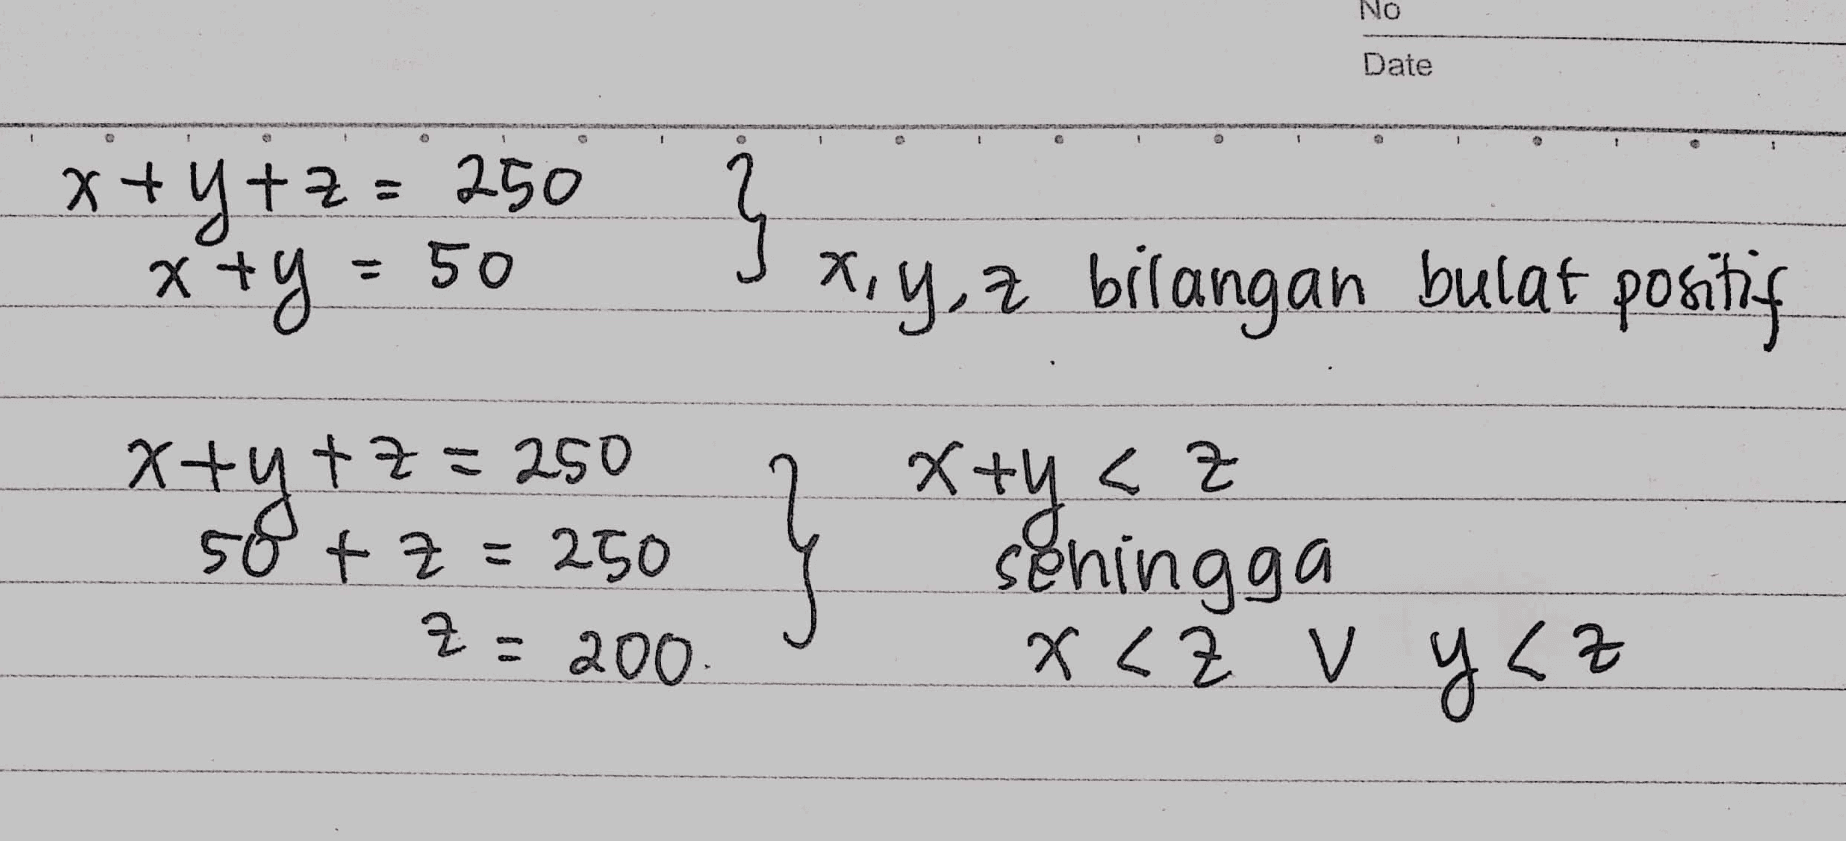 No
Date
x + y + z = 250
x + y = 50 } x, y, z bilangan bulat positif
x + y + z = 250 } x + y < z
50 + z = 250 sehingga
z = 200. x < z ∨ y < z